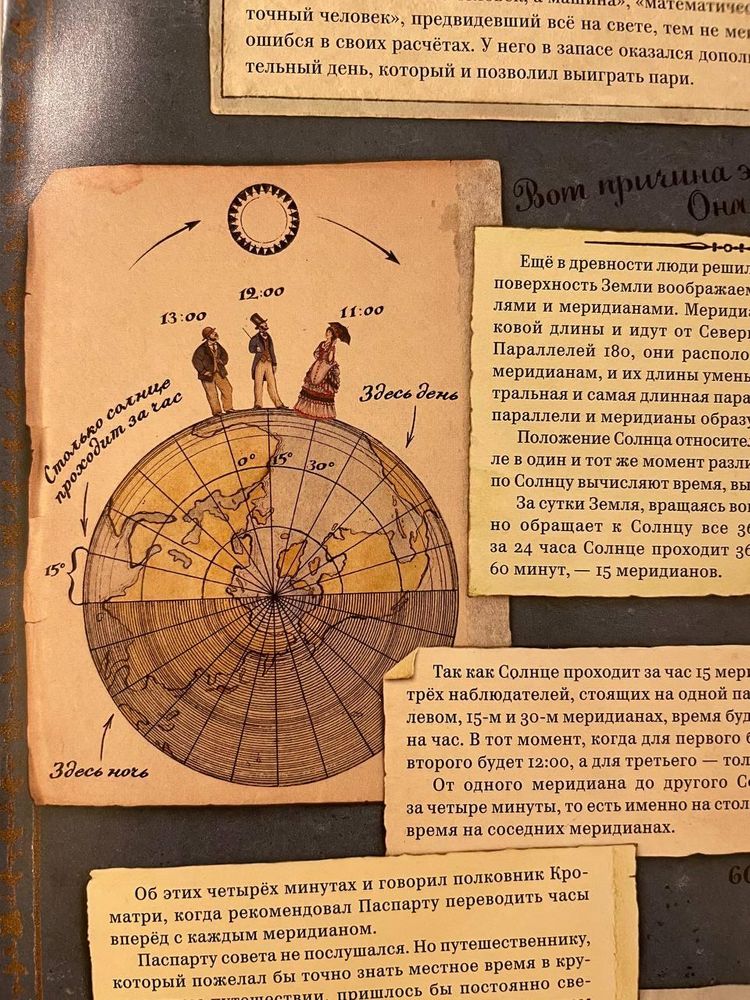 точный человек», предвидевший всё на свете, тем не
ошибся в своих расчётах. У него в запасе оказался
тельный день, который и позволил выиграть пари.
Вот причина
Она
13:00
12:00
11:00
Столько солнце
проходит за час
Здесь день
0°
15°
30°
15°
Здесь ночь
Ещё в древности люди
поверхность Земли
лями и меридианами.
ковой длины и идут от
Параллелей 180, они
меридианам, и их длины
тральная и самая длинная
параллели и меридианы
Положение Солнца
ле в один и тот же момент
по Солнцу вычисляют время,
За сутки Земля, вращаясь
но обращает к Солнцу все
за 24 часа Солнце проходит
60 минут, — 15 меридианов.
Так как Солнце проходит за час 15
трёх наблюдателей, стоящих на одной
левом, 15-м и 30-м меридианах, время
на час. В тот момент, когда для первого
второго будет 12:00, а для третьего —
От одного меридиана до другого
за четыре минуты, то есть именно на
время на соседних меридианах.
Об этих четырёх минутах и говорил полковник Кро-
матри, когда рекомендовал Паспарту переводить часы
вперёд с каждым меридианом.
Паспарту совета не послушался. Но путешественнику,
который пожелал бы точно знать местное время в кру-
путешествии, пришлось бы постоянно све-